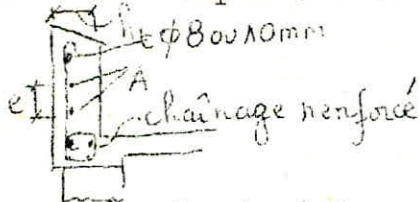 h
t φ 8 ou 10mm
A
e
chaînage renforcé